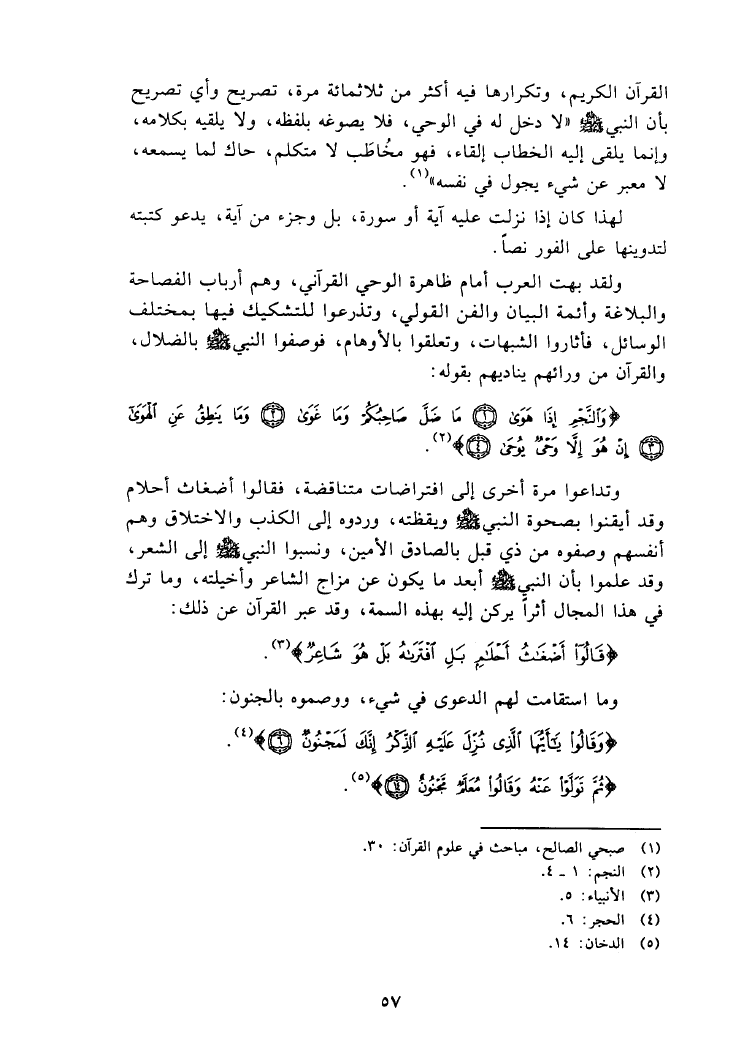 القرآن الكريم، وتكرارها فيه أكثر من ثلاثمائة مرة، تصريح وأي تصريح
بأن النبي ﷺ «لا دخل له في الوحي، فلا يصوغه بلفظه، ولا يلقيه بكلامه،
وإنما يلقى إليه الخطاب إلقاء، فهو مخُاطَب لا متكلم، حاك لما يسمعه،
لا معبر عن شيء يجول في نفسه»(١).
لهذا كان إذا نزلت عليه آية أو سورة، بل وجزء من آية، يدعو كتبته
لتدوينها على الفور نصاً.
ولقد بهت العرب أمام ظاهرة الوحي القرآني، وهم أرباب الفصاحة
والبلاغة وأئمة البيان والفن القولي، وتذرعوا للتشكيك فيها بمختلف
الوسائل، فأثاروا الشبهات، وتعلقوا بالأوهام، فوصفوا النبي ﷺ بالضلال،
والقرآن من ورائهم يناديهم بقوله:
﴿وَٱلنَّجْمِ إِذَا هَوَىٰ ۝١ مَا ضَلَّ صَاحِبُكُمْ وَمَا غَوَىٰ ۝٢ وَمَا يَنطِقُ عَنِ ٱلْهَوَىٰٓ
۝٣ إِنْ هُوَ إِلَّا وَحْىٌ يُوحَىٰ ۝٤﴾(٢).
وتداعوا مرة أخرى إلى افتراضات متناقضة، فقالوا أضغاث أحلام
وقد أيقنوا بصحوة النبي ﷺ ويقظته، وردوه إلى الكذب والاختلاق وهم
أنفسهم وصفوه من ذي قبل بالصادق الأمين، ونسبوا النبي ﷺ إلى الشعر،
وقد علموا بأن النبي ﷺ أبعد ما يكون عن مزاج الشاعر وأخيلته، وما ترك
في هذا المجال أثراً يركن إليه بهذه السمة، وقد عبر القرآن عن ذلك:
﴿قَالُوٓا۟ أَضْغَٰثُ أَحْلَٰمٍ بَلِ ٱفْتَرَىٰهُ بَلْ هُوَ شَاعِرٌ﴾(٣).
وما استقامت لهم الدعوى في شيء، ووصموه بالجنون:
﴿وَقَالُوا۟ يَٰٓأَيُّهَا ٱلَّذِى نُزِّلَ عَلَيْهِ ٱلذِّكْرُ إِنَّكَ لَمَجْنُونٌ ۝٦﴾(٤).
﴿ثُمَّ تَوَلَّوْا۟ عَنْهُ وَقَالُوا۟ مُعَلَّمٌ مَّجْنُونٌ ۝١٤﴾(٥).
(١) صبحي الصالح، مباحث في علوم القرآن: ٣٠.
(٢) النجم: ١ ـ ٤.
(٣) الأنبياء: ٥.
(٤) الحجر: ٦.
(٥) الدخان: ١٤.
٥٧